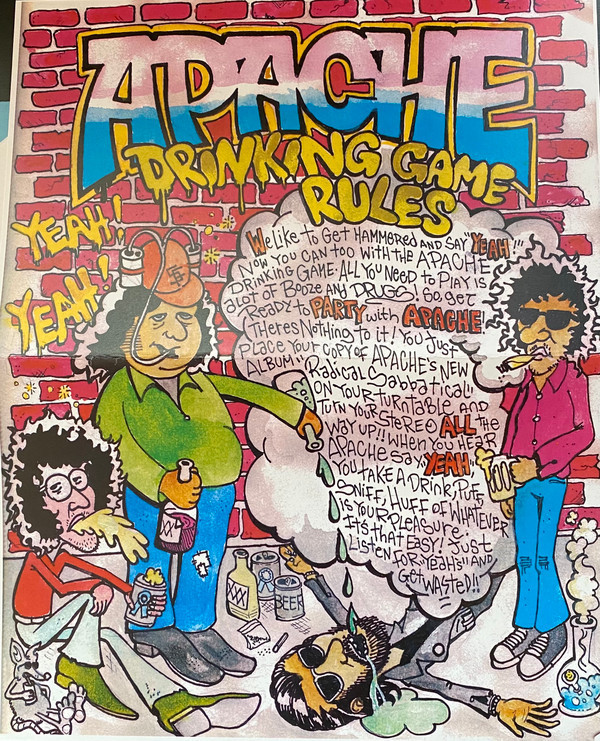 APACHE
DRINKING GAME
RULES
YEAH!
YEAH!
SF
We Like to Get HAMMERED AND SAY "YEAH"!!
NOW YOU CAN TOO WITH THE APACHE
DRINKING GAME. ALL YOU NEED TO PLAY IS
A LOT OF BOOZE AND DRUGS! SO GET
READY TO PARTY with APACHE
THERES NOTHING TO IT! YOU JUST
PLACE YOUR COPY OF APACHE'S NEW
ALBUM "Radical Sabbatical"
ON YOUR TURNTABLE AND
TURN YOUR STEREO ALL THE
WAY UP!! WHEN YOU HEAR
APACHE SAY "YEAH"
YOU TAKE A DRINK, PUFF,
SNIFF, HUFF OF WHATEVER
IS YOUR PLEASURE.
IT'S THAT EASY! JUST
LISTEN FOR "YEAH'S" AND
GET WASTED!!
XX
XXX
BEER